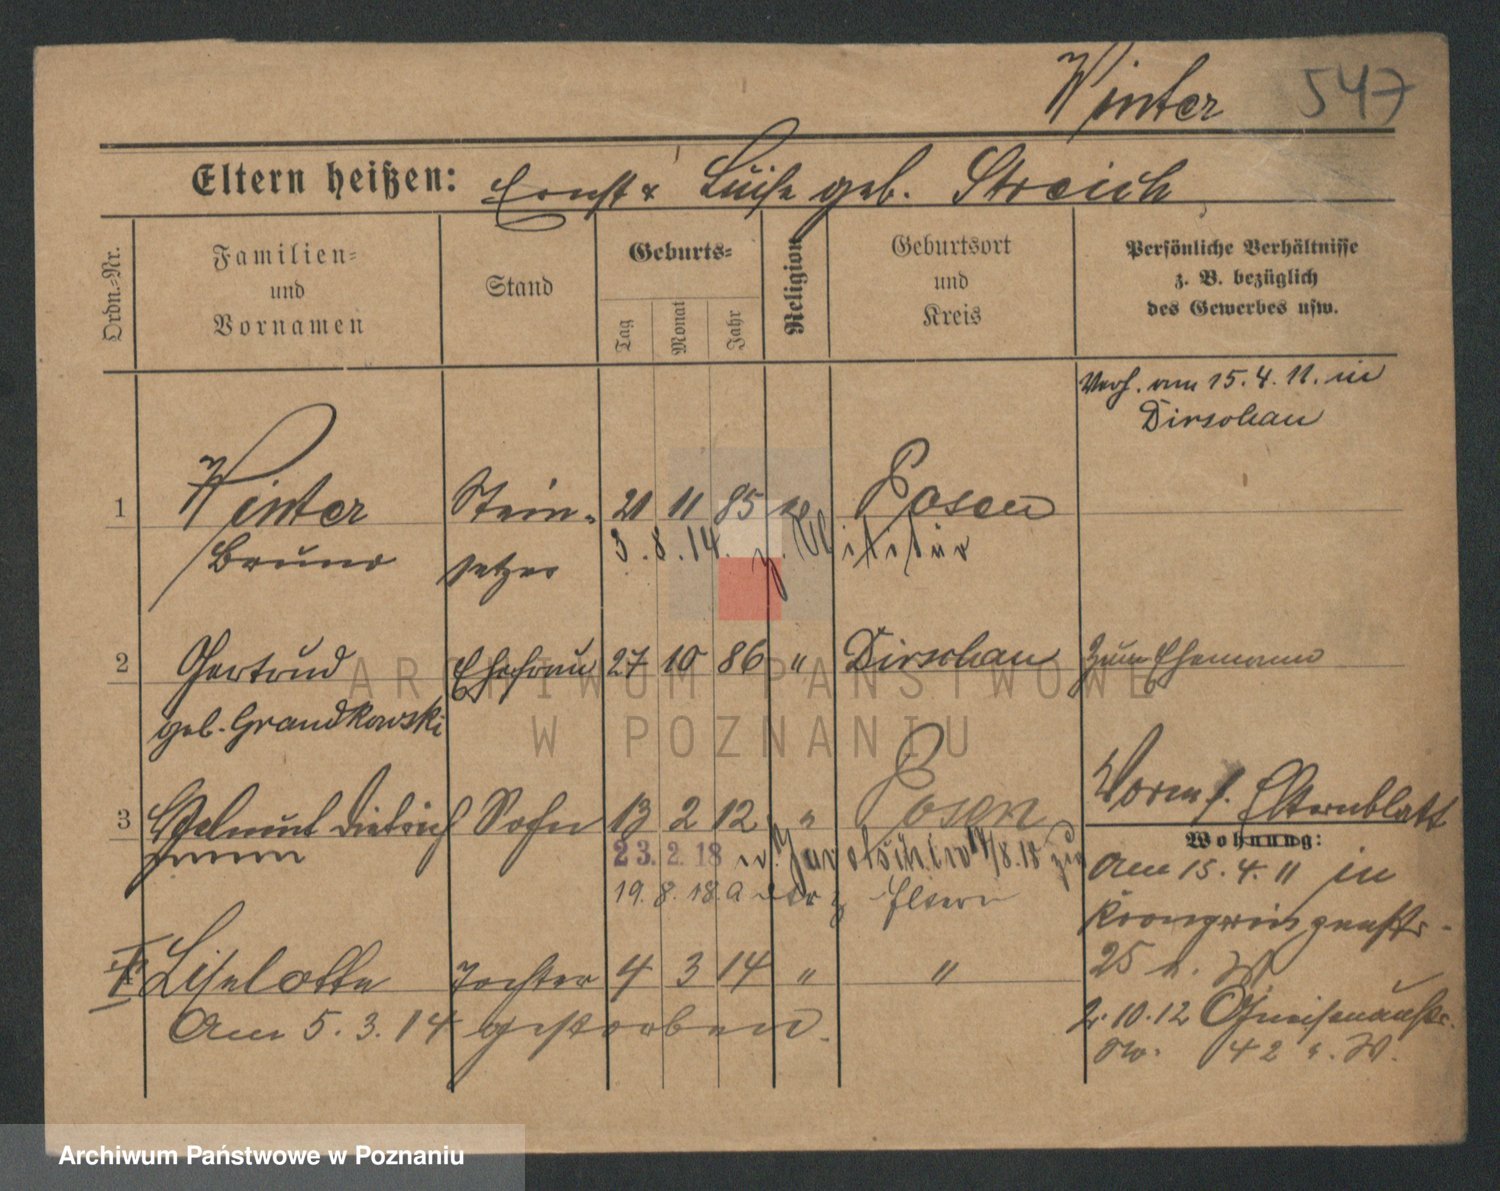 Winter 547
Eltern heißen: Ernst & Luise geb. Streich
Ordn.-Nr.
Familien-
und
Vornamen
Stand
Geburts-
Tag
Monat
Jahr
Religion
Geburtsort
und
Kreis
Persönliche Verhältnisse
z. B. bezüglich
des Gewerbes usw.
Verh. am 15.4.11. in
Dirschau
1 Winter Stein- 21 11 85 Posen
Bruno setzer 3.8.14. z. Militär
2 Gertrud Ehefrau 27 10 86 " Dirschau Zum Ehemann
geb. Grandkowski
3 Helmut Dietrich Sohn 13 2 12 " Posen
23. 2. 18 n. Jarotschin
19. 8. 18.
Vorm. s. Elternblatt
Wohnung:
Am 15.4.11 in
Kronprinzenstr.
25
2.10.12 Gneisenaustr.
42
Liselotte Tochter 4 3 14 " "
Am 5.3.14 gestorben.
ARCHIWUM PAŃSTWOWE
W POZNANIU
Archiwum Państwowe w Poznaniu